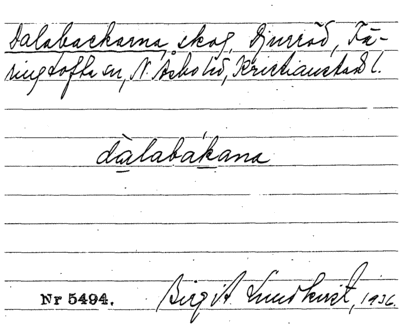 Dalabackarna, skog, Djurröd, Fä-
ringtofta sn, N. Åsbo hd, Kristianstad l.
dàlabákana
Nr 5494. Birgit Lundkvist, 1936.